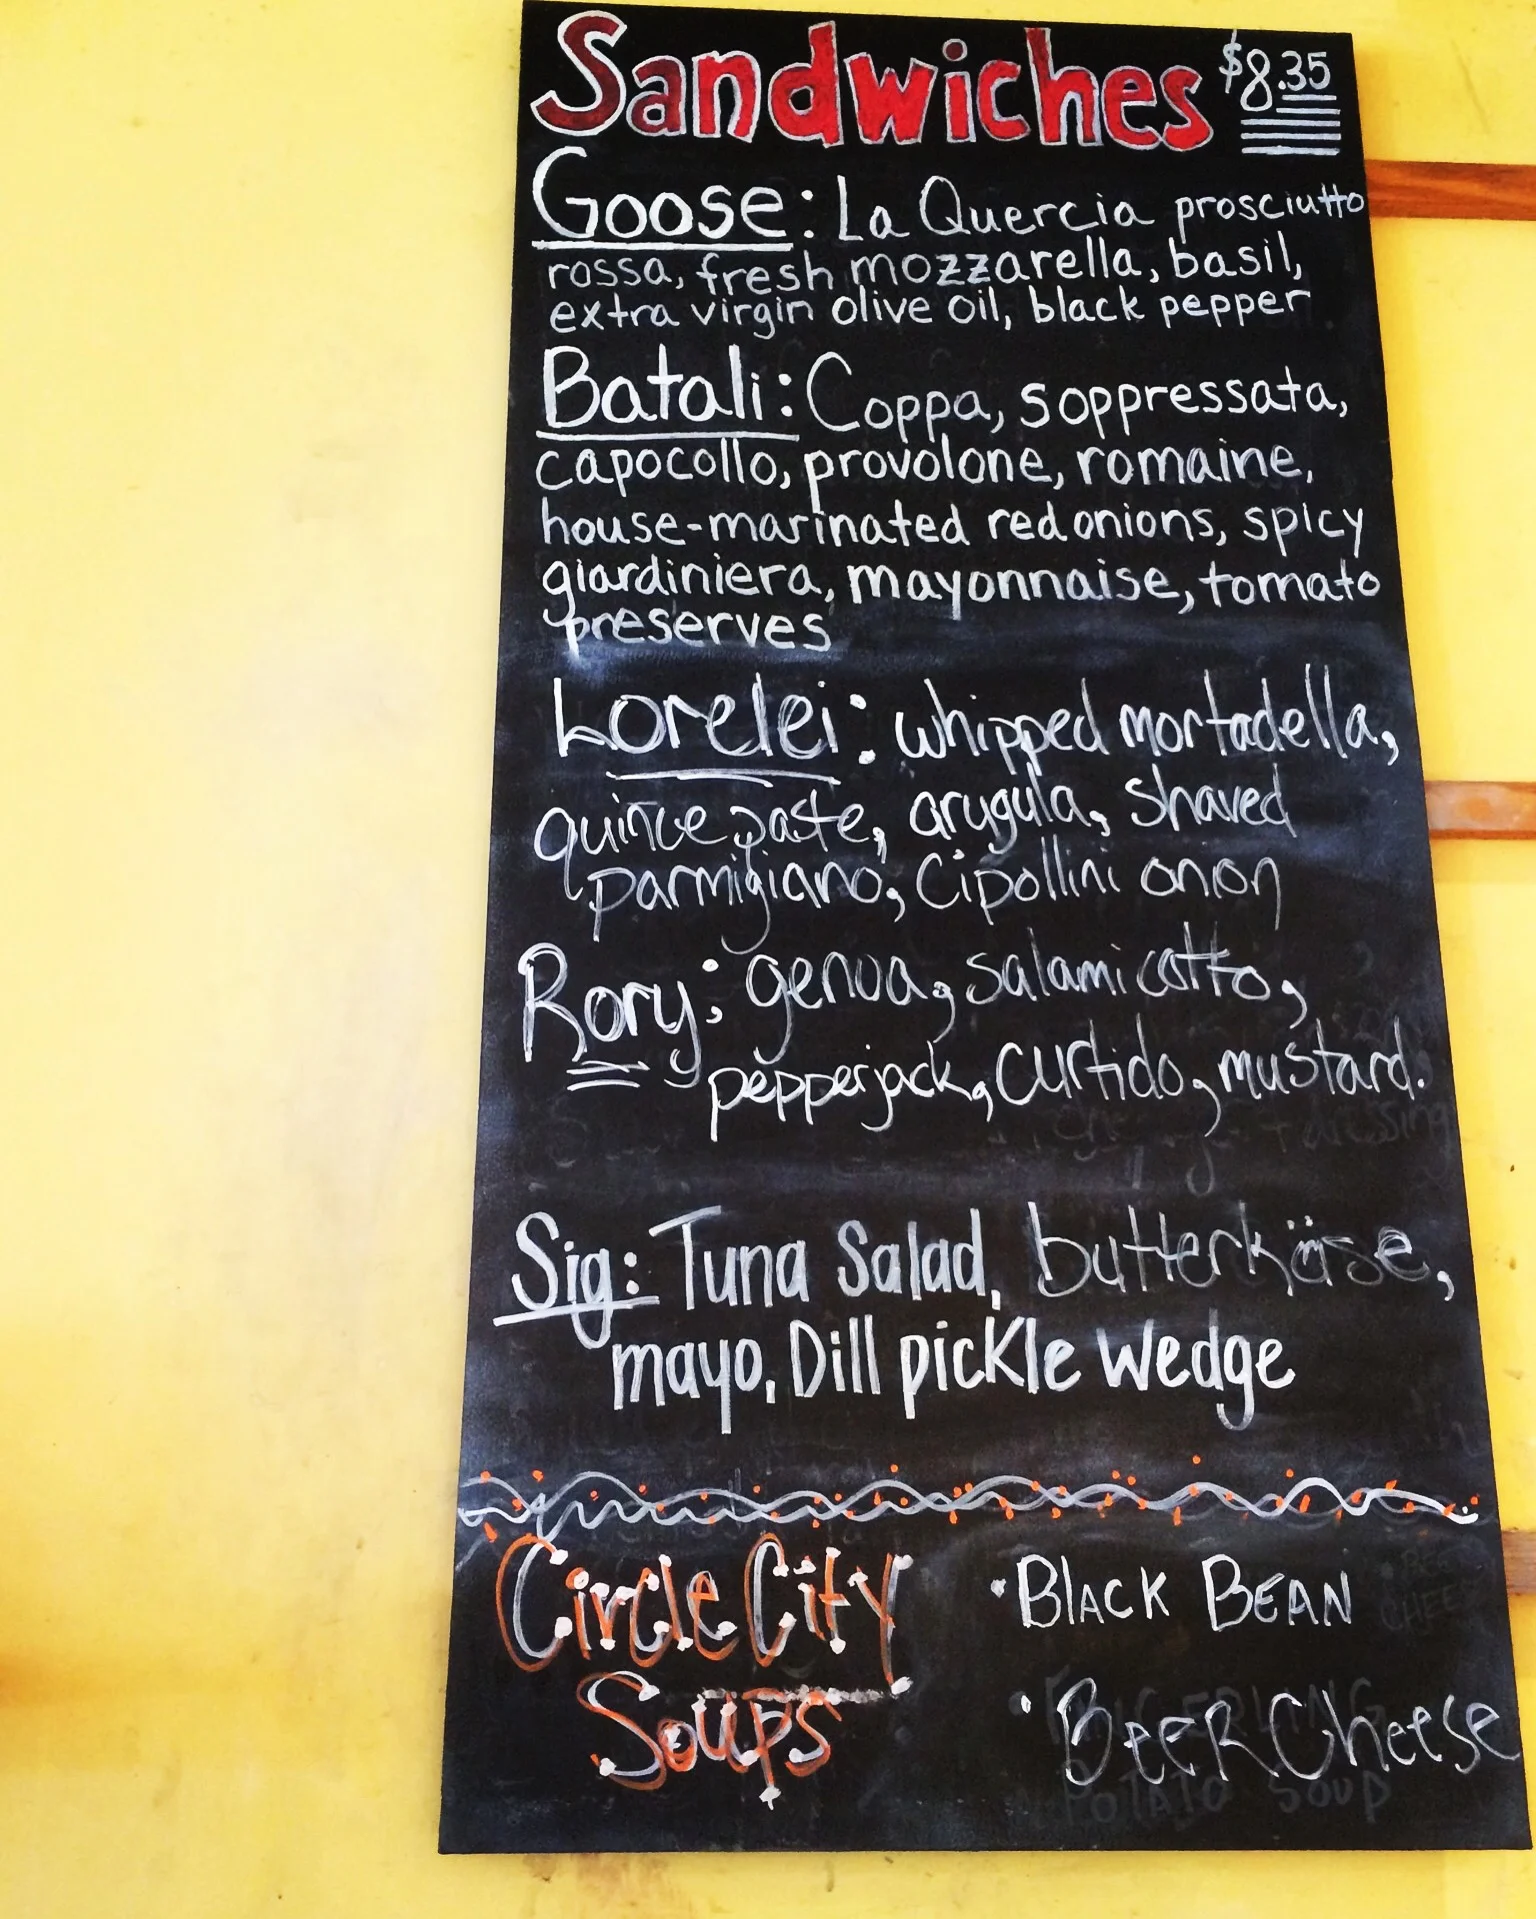 Sandwiches $8.35
Goose: La Quercia prosciutto
rossa, fresh mozzarella, basil,
extra virgin olive oil, black pepper
Batali: Coppa, soppressata,
capocollo, provolone, romaine,
house-marinated red onions, spicy
giardiniera, mayonnaise, tomato
preserves
Lorelei: whipped mortadella,
quince paste, arugula, shaved
parmigiano, cipollini onion
Rory: genoa, salami cotto,
pepperjack, curtido, mustard.
Sig: Tuna Salad, butterkäse,
mayo, Dill pickle wedge
Circle City
Soups
• BLACK BEAN
• BEER Cheese